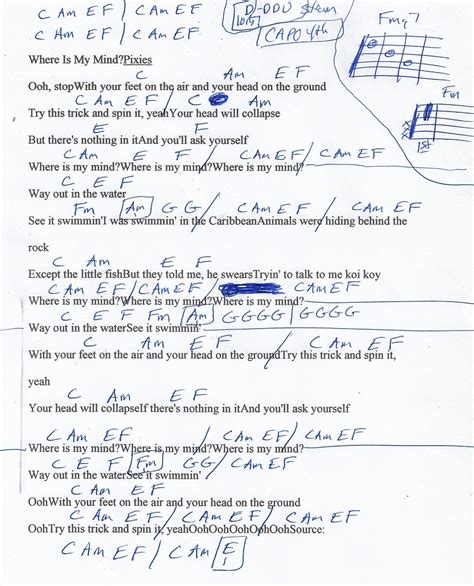 C Am EF / C Am EF D-DDU strum Fmaj7
C Am EF / C Am EF CAPO 4th
Where Is My Mind?Pixies Fm
C Am E F
Ooh, stopWith your feet on the air and your head on the ground
C Am EF / C Am
Try this trick and spin it, yeahYour head will collapse
E F 1st
But there's nothing in itAnd you'll ask yourself
C Am E F / C Am EF / C Am EF
Where is my mind?Where is my mind?Where is my mind?
C E F
Way out in the water
Fm Am G G / C Am EF / C Am EF
See it swimmin'I was swimmin' in the CaribbeanAnimals were hiding behind the
rock
C Am E F
Except the little fishBut they told me, he swearsTryin' to talk to me koi koy
C Am EF / C Am EF / C Am EF
Where is my mind?Where is my mind?Where is my mind?
C E F Fm Am GGGG | GGGG
Way out in the waterSee it swimmin'
C Am EF C Am EF
With your feet on the air and your head on the groundTry this trick and spin it,
yeah
C Am E F
Your head will collapseIf there's nothing in itAnd you'll ask yourself
C Am EF / C Am EF / C Am EF
Where is my mind?Where is my mind?Where is my mind?
C E F Fm GG / C Am EF
Way out in the waterSee it swimmin'
C Am EF
OohWith your feet on the air and your head on the ground
C Am EF / C Am EF / C Am EF
OohTry this trick and spin it, yeahOohOohOohOohOohSource:
C Am EF / C Am E
1